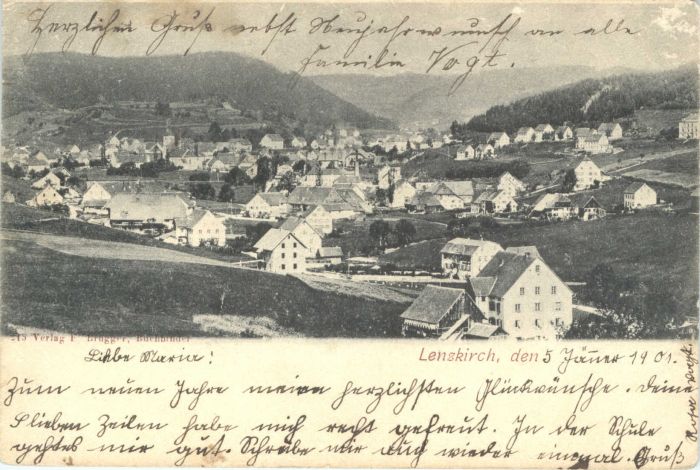 Herzlichen Gruß nebst Neujahrwunsch an alle
Familie Vogt.
215 Verlag F. Brugger, Buchbinder
Liebe Maria!
Lenzkirch, den 5 Jänner 1901.
Zum neuen Jahre meine herzlichsten Glückwünsche. Deine
lieben Zeilen habe mich recht gefreut. In der Schule
gehtes mir gut. Schreibe mir auch wieder einmal. Gruß
von